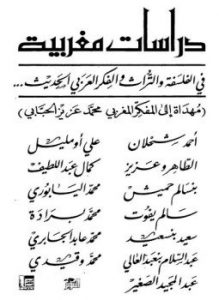 دراسات مغربية
في الفلسفة والتراث والفكر العربي الحديث...
(مهداة إلى المفكر المغربي محمد عزيز الحبابي)
أحمد شحلان علي أومليل
الطاهر وعزيز كمال عبد اللطيف
بنسالم حميش محمد
سالم يفوت محمد برادة
سعيد بنسعيد محمد عابد الجابري
عبد السلام بنعبد العالي محمد وقيدي
عبد المجيد الصغير